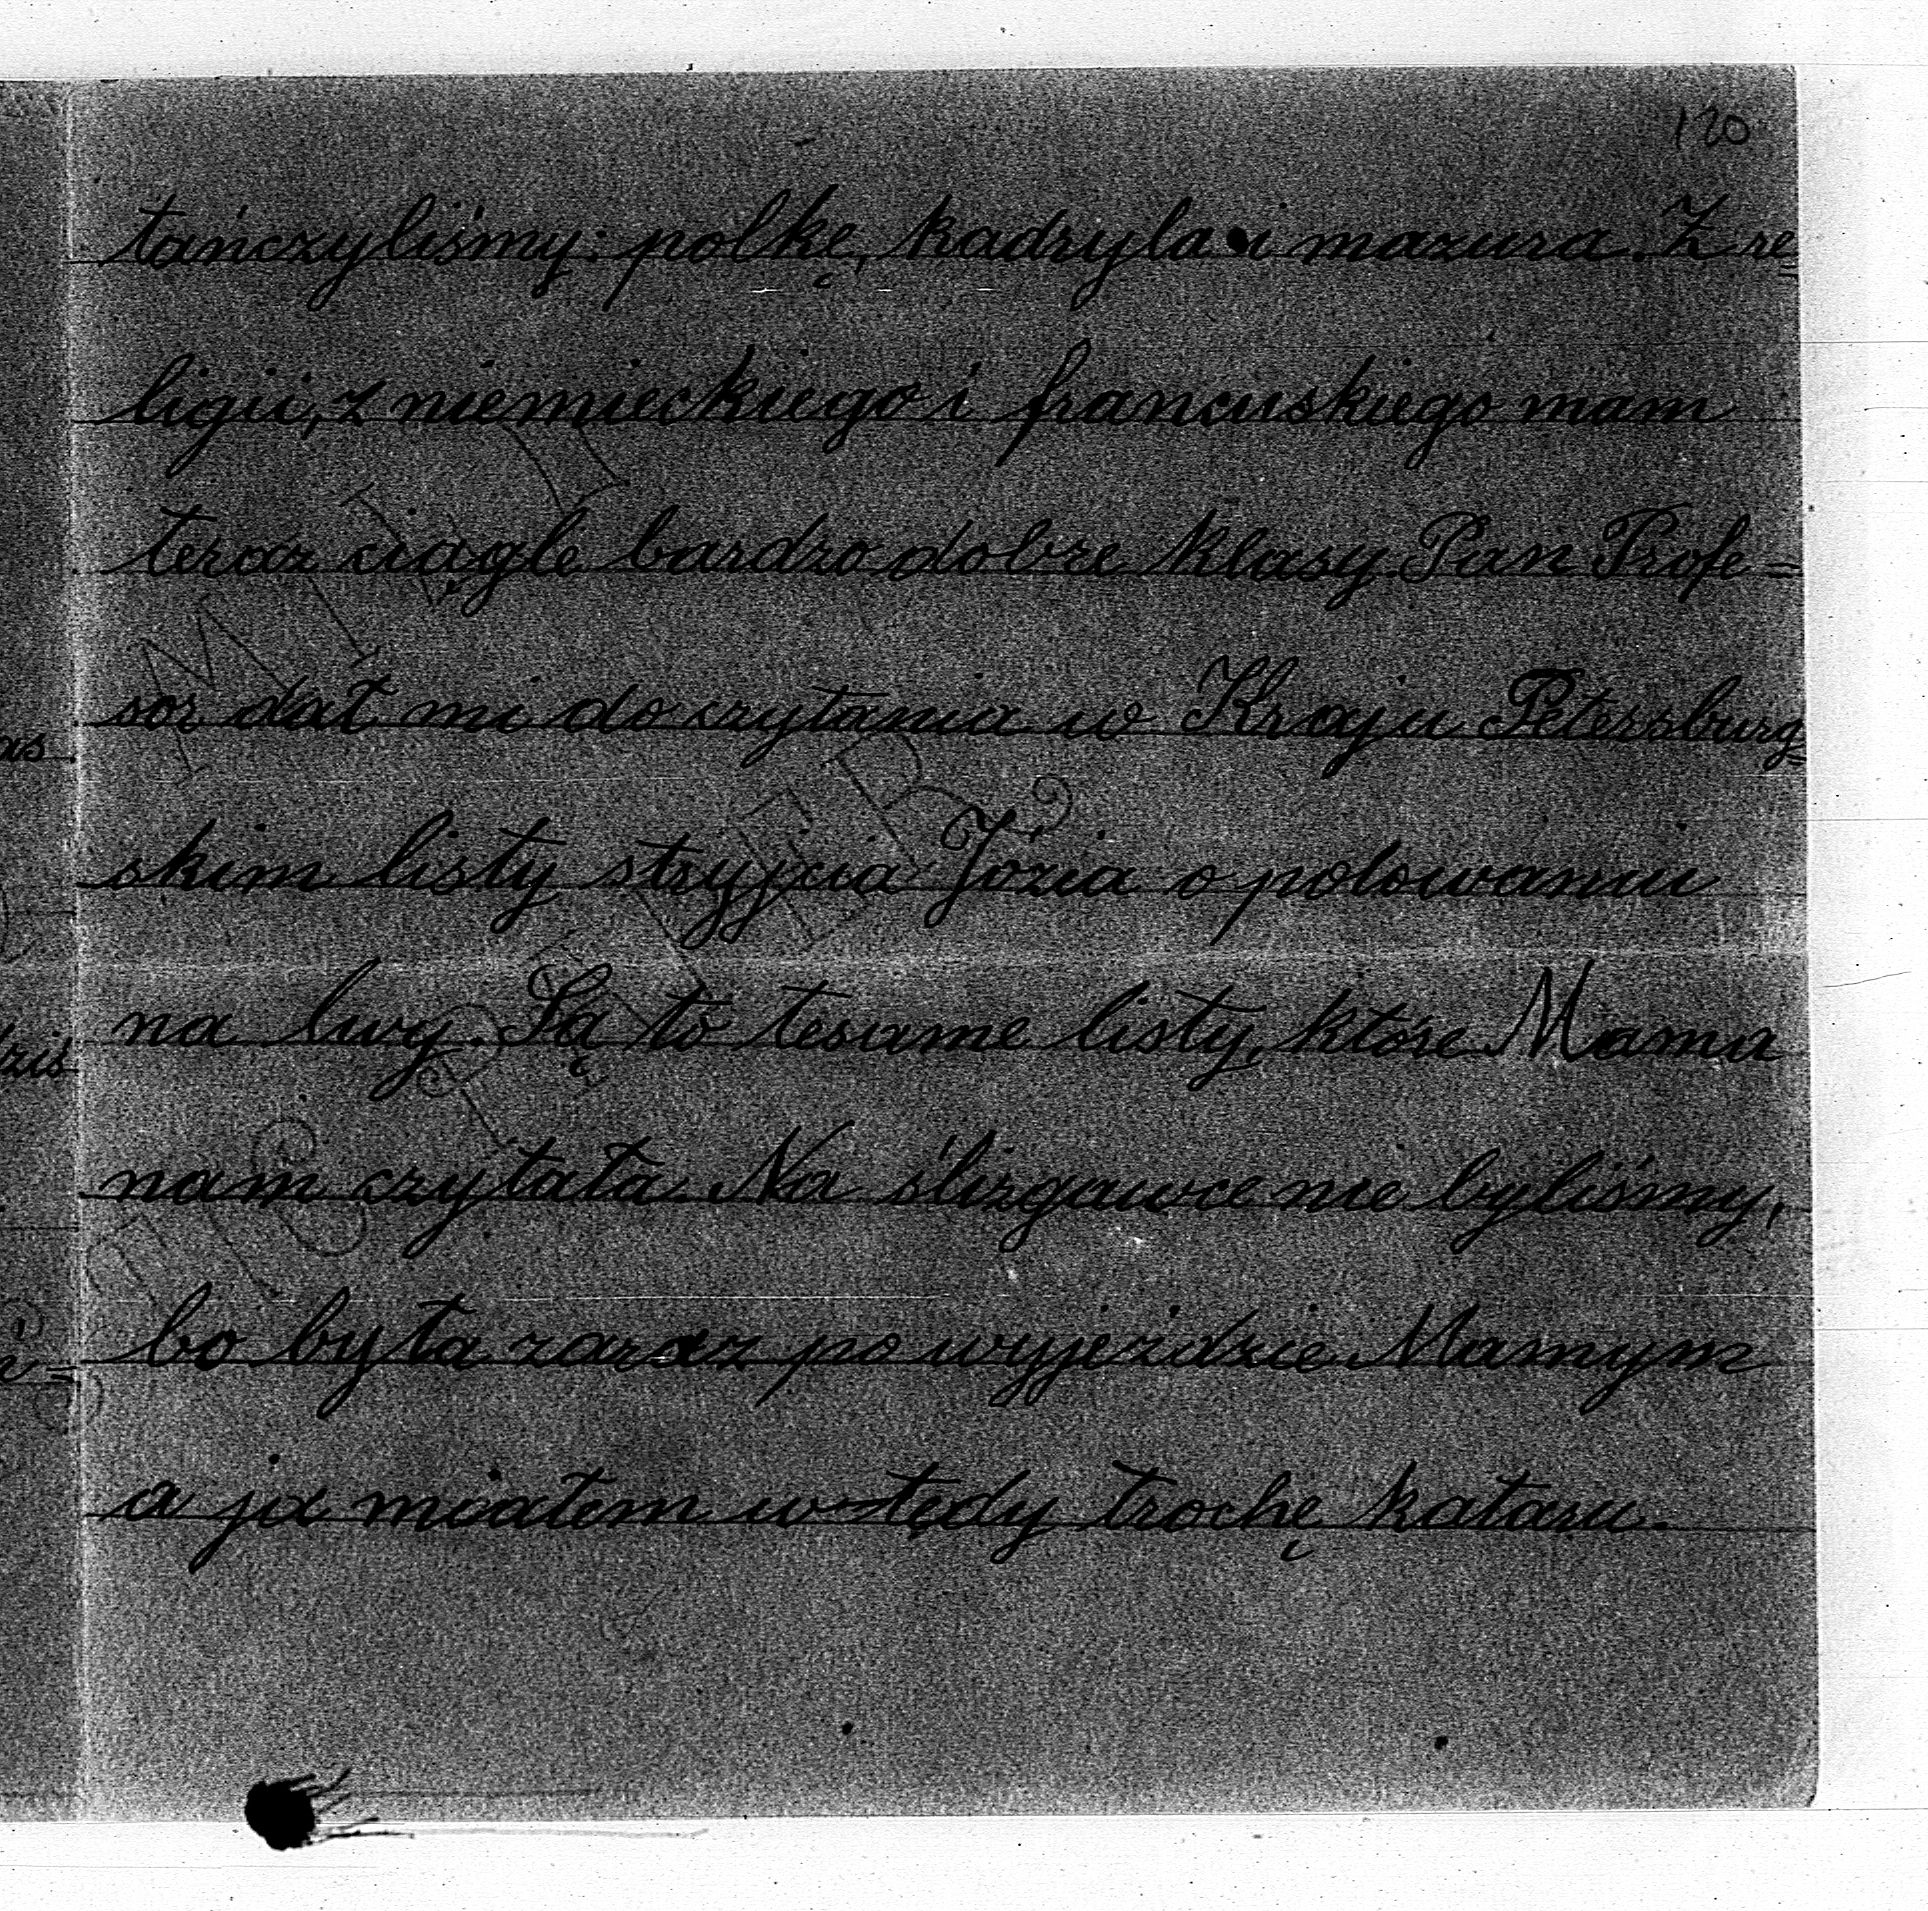 120
tańczyliśmy: polkę, kadryla i mazura. Z re=
ligii, z niemieckiego i francuskiego mam
teraz ciągle bardzo dobre klasy. Pan Profe=
sor dał mi do czytania w Kraju Petersburg=
skim listy stryjcia Józia o polowaniu
na lwy. Są to tesame listy, które Mama
nam czytała. Na ślizgawce nie byliśmy,
bo była zaraz po wyjeździe Mamym
a ja miałem wtędy trochę kataru.